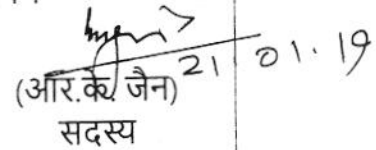 21 01.19
(आर.के. जैन)
सदस्य